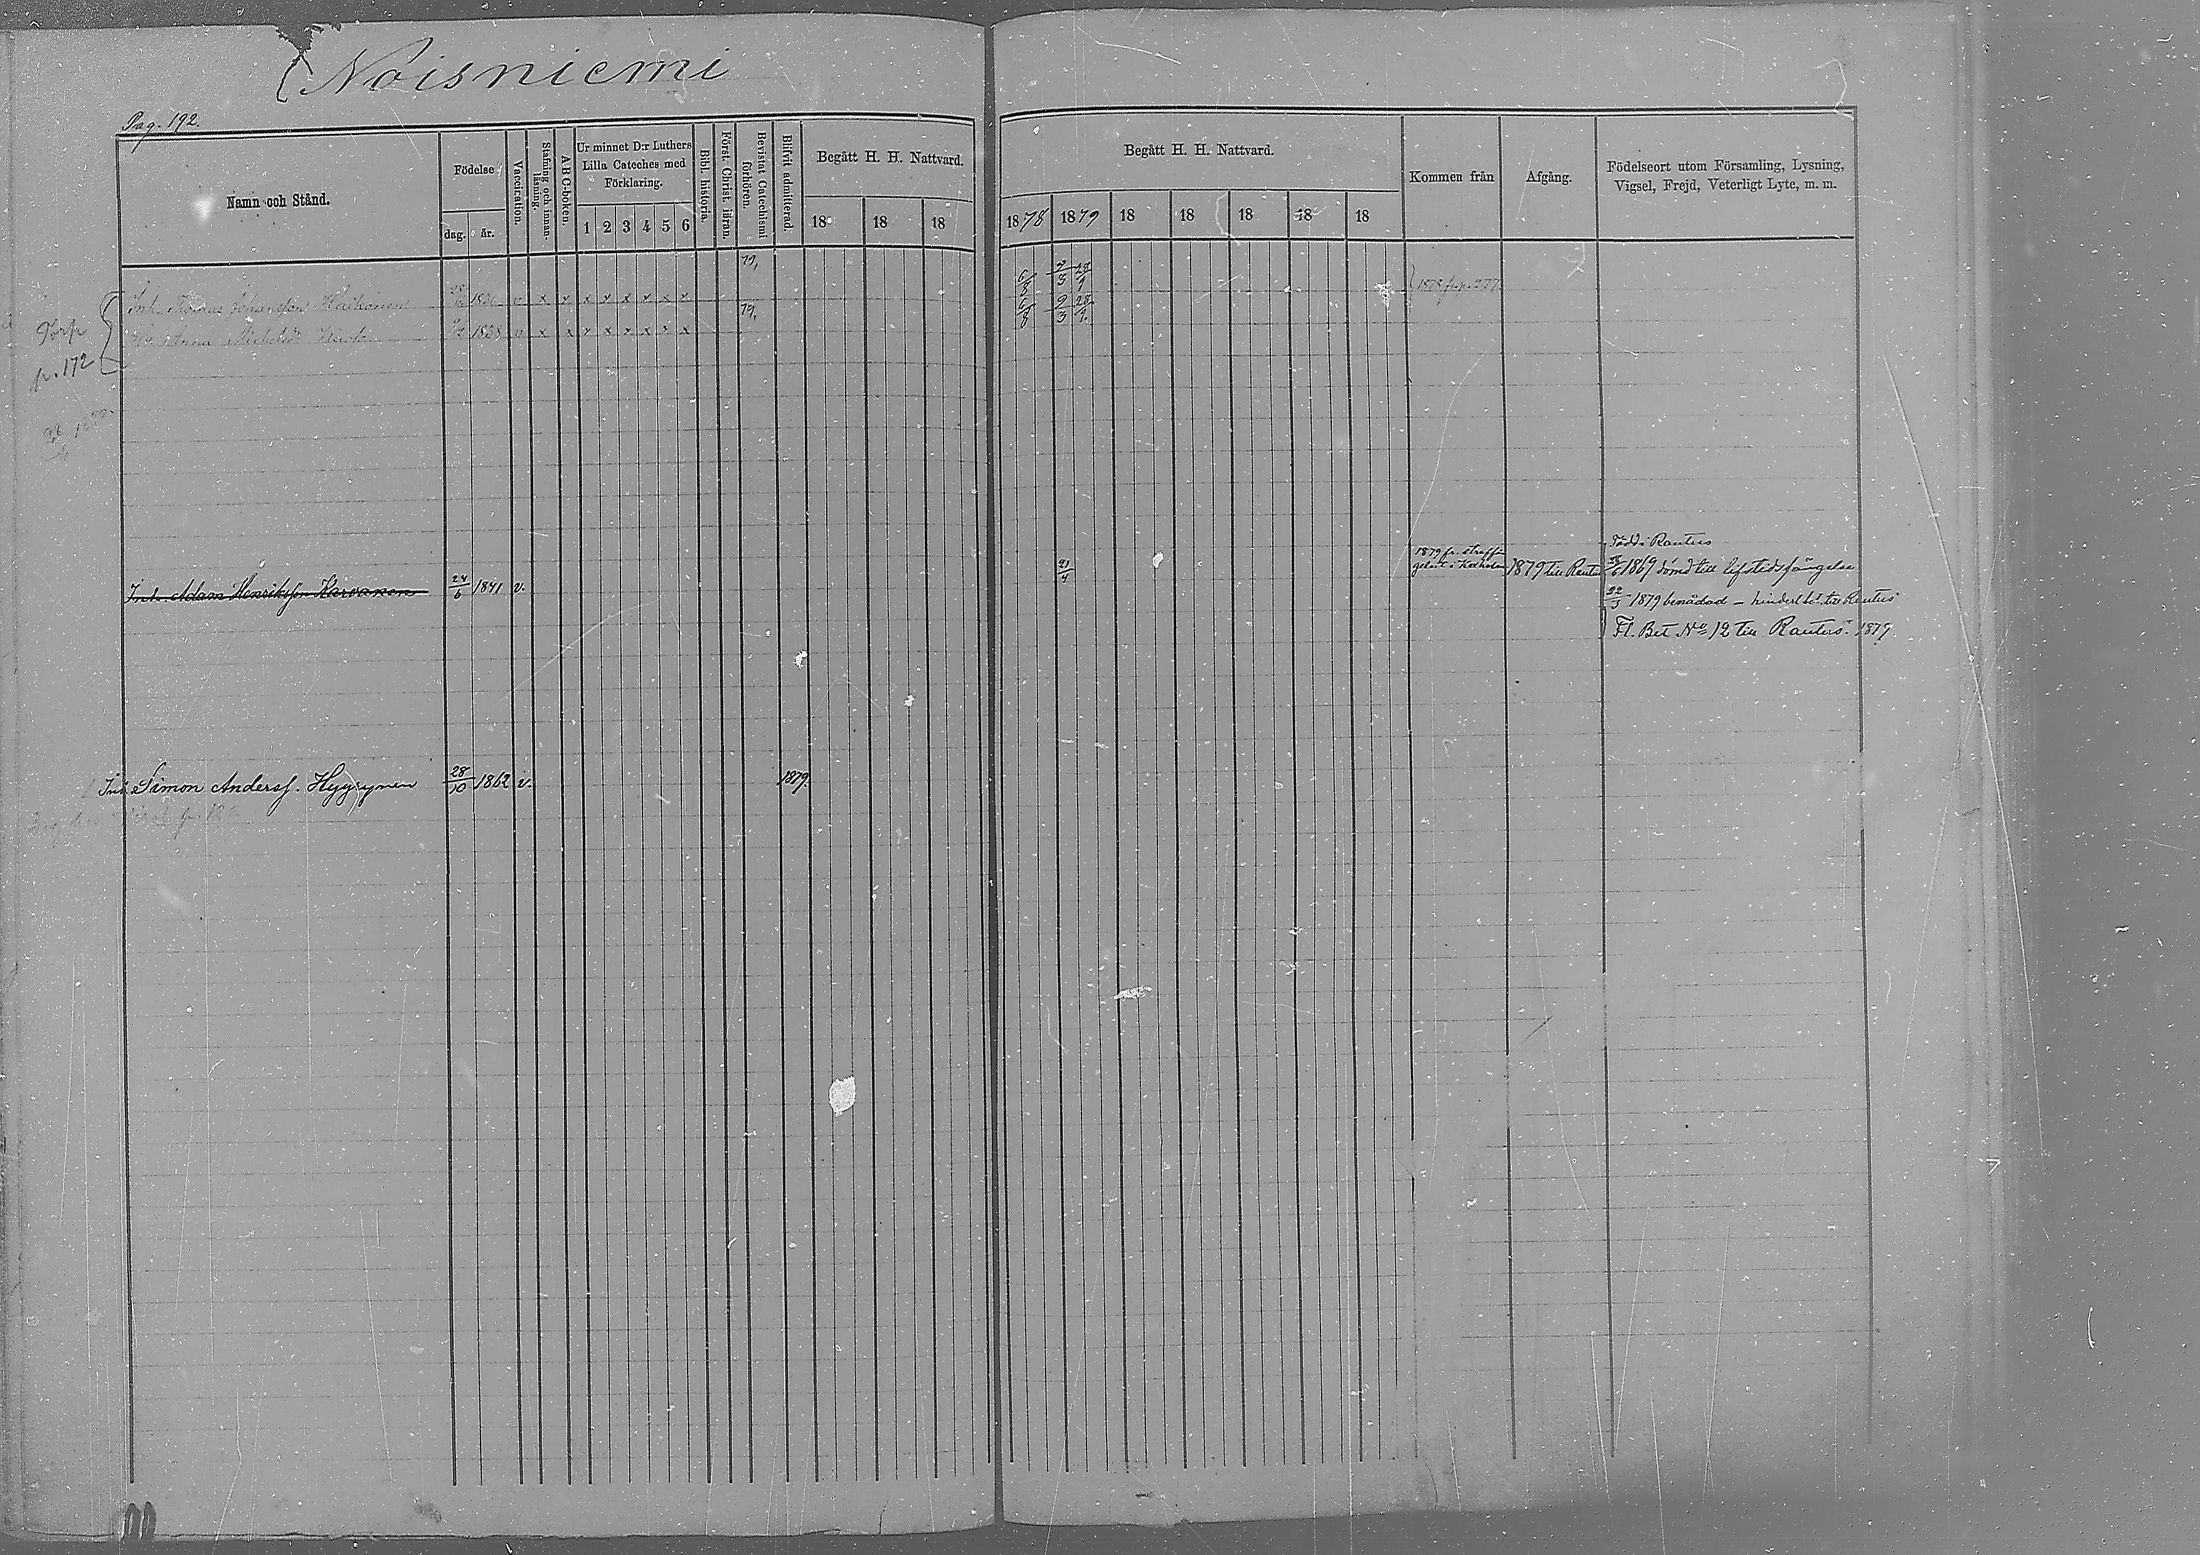 Noisniemi
Pag. 192.
Namn och Stånd.
Födelse
dag.
år.
Vaccination.
Stafning och innanläsning.
ABC-boken.
Ur minnet D:r Luthers
Lilla Cateches med
Förklaring.
1 2 3 4 5 6
Bibl. historia.
Först. Christ. läran.
Bevistat Catechismi förhören.
Blifvit admitterad.
Begått H. H. Nattvard.
18 18 18
Begått H. H. Nattvard.
1878 1879 18 18 18 18 18
Kommen från
Afgång.
Födelseort utom Församling, Lysning,
Vigsel, Frejd, Veterligt Lyte, m. m.
Torp
p. 172
Inh. Thomas Johansson v x v x v x v x v 79, 6/8 9/3 28/9 1878 fr. p. 277
Anna 1838 v x x v x v x x x 79, 6/8 9/3 28/9
Inh. Adam Henriksson Karvonen 24/6 1841 v. 21/4 1879 fr. 1879 till Rautus
Född i Rautus
1869 dömd till lifstidsfängelse
22/3 1879 benådad – till Rautus
Fl. Bet. No 12 till Rautus 1879.
Inh. Simon Andersf. Hyyrynen 28/10 1862 v. 1879.